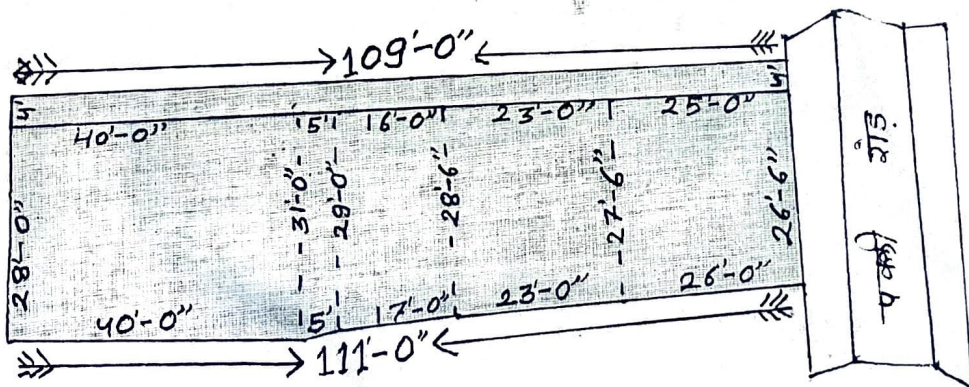 109'-0"
5' 5'
40'-0" 5' 16'-0" 23'-0" 25'-0"
28'-0" 31'-0" 29'-0" 28'-6" 27'-6" 26'-6"
40'-0" 5' 17'-0" 23'-0" 26'-0"
111'-0"
रोड